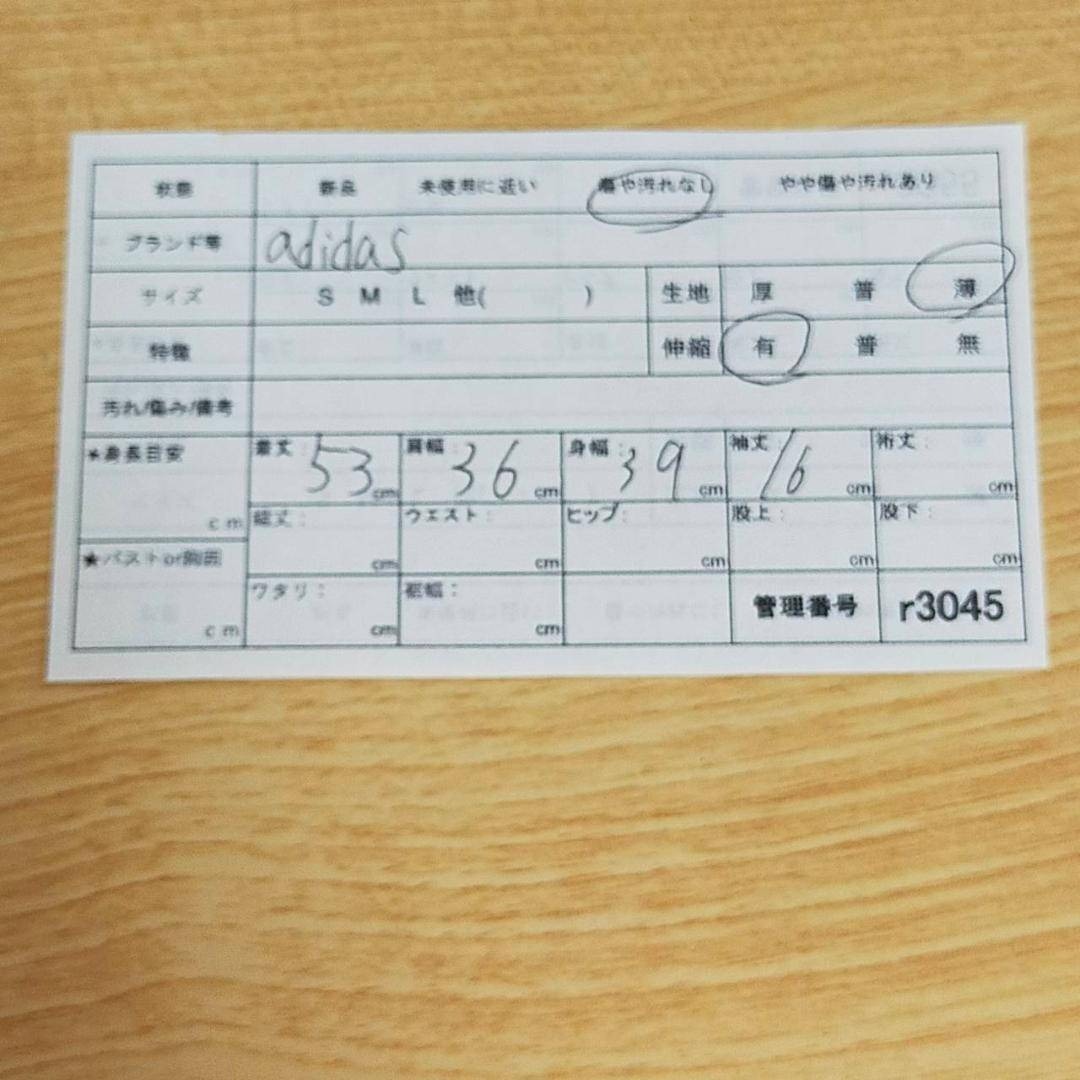 状態 新品 未使用に近い 傷や汚れなし やや傷や汚れあり
ブランド等 adidas
サイズ S M L 他( ) 生地 厚 普 薄
特徴 伸縮 有 普 無
汚れ/傷み/備考
★身長目安 cm
着丈: 53 cm 肩幅: 36 cm 身幅: 39 cm 袖丈: 16 cm 裄丈: cm
総丈: cm ウエスト: cm ヒップ: cm 股上: cm 股下: cm
★バストor胸囲 cm
ワタリ: cm 裾幅: cm 管理番号 r3045